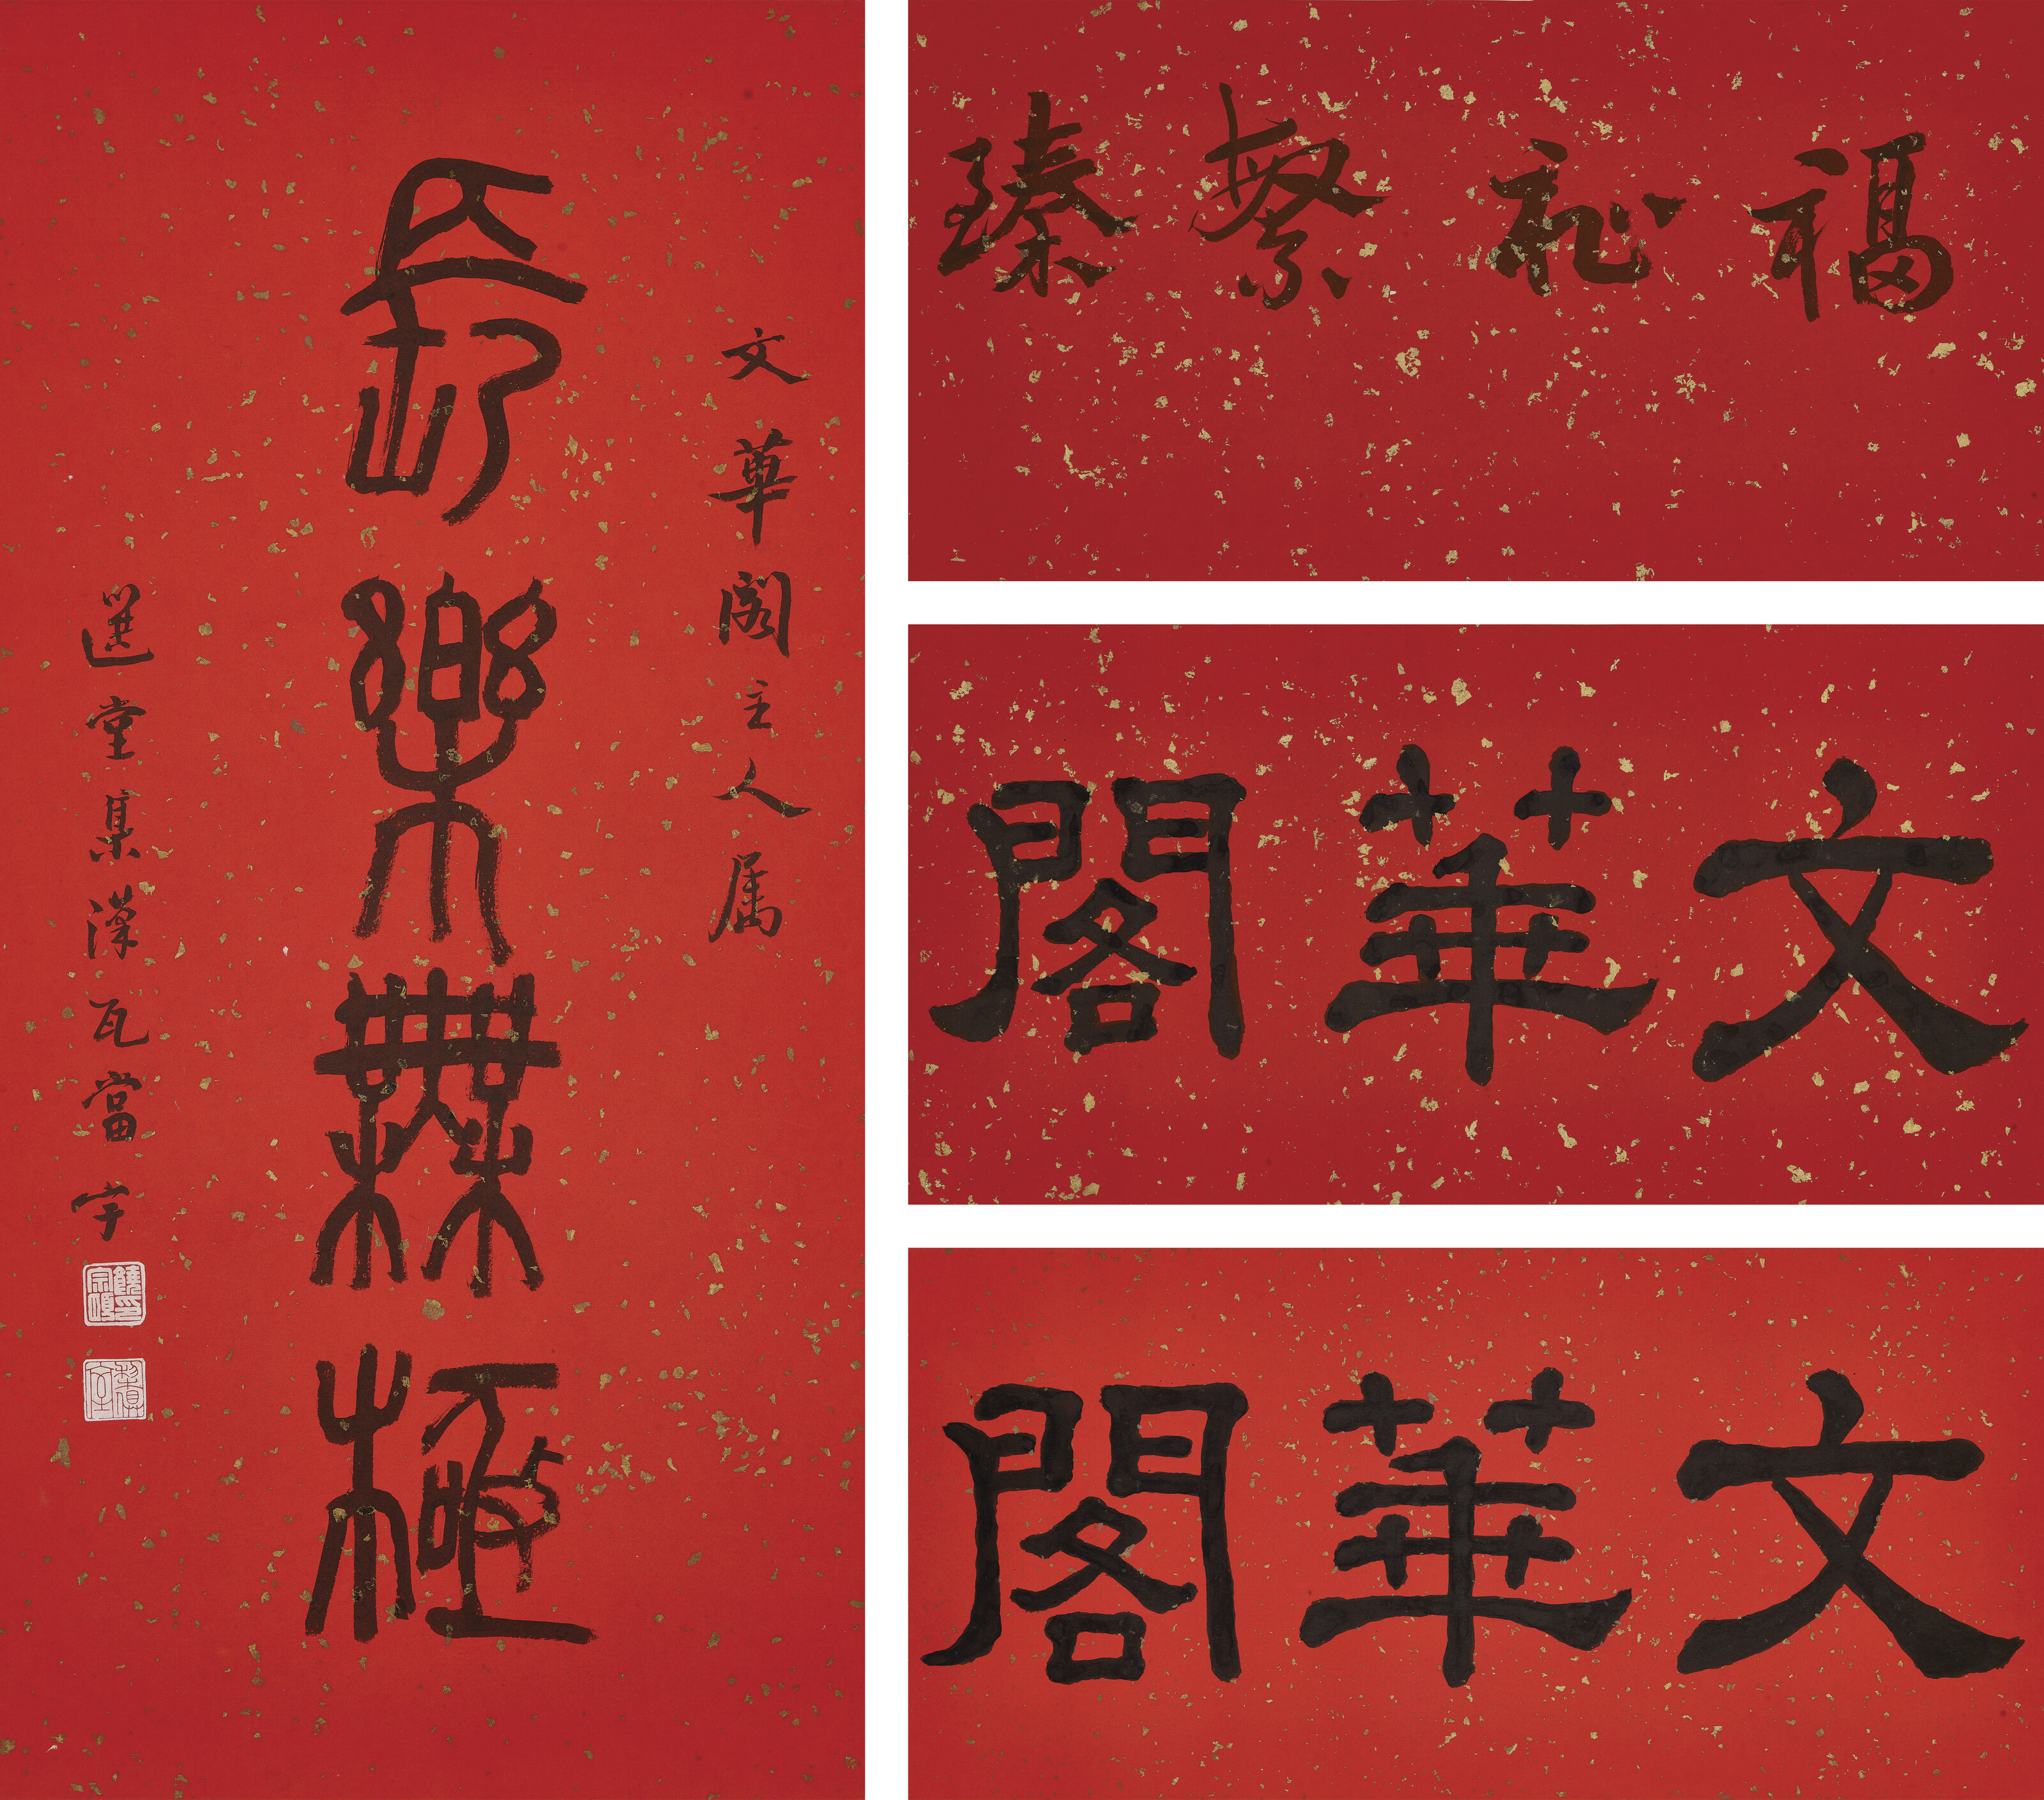 文華閣主人属
長樂無極
選堂集漢瓦當字
饒宗頤印
福祉繁臻
文華閣
文華閣